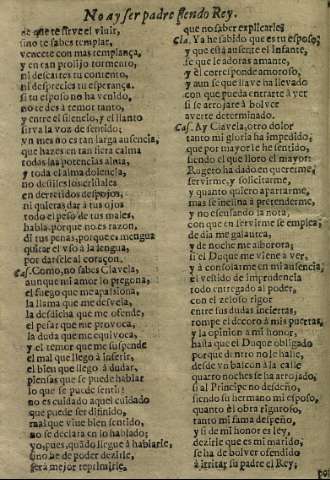 No ay ser padre siendo Rey.
de que te sirve el vivir,
sino te sabes templar,
vencete con mas templança,
y en tan prolijo tormento,
ni descartes tu contento,
ni desprecies tu esperança.
si tu esposo no ha venido,
no te des à temor tanto,
y entre el silencio, y el llanto
sirva la voz de sentido;
vn mes no es tan larga ausencia,
que hazes en tan fiera calma
todas las potencias alma,
y toda el alma dolencia,
no desiles los cristales
en derretidos despojos,
ni quieras dar à tus ojos
todo el peso de tus males,
habla, porque no es razon,
di tus penas, porque es mengua
quitar el vso à la lengua,
por darsele al coraçon.
Cas. Como, no sabes Clavela,
aunque mi amor lo pregona,
el fuego que me apasiona,
la llama que me desvela,
la desdicha que me ofende,
el pesar que me provoca,
la duda que me equivoca,
y el temor que me suspende
el mal que llego à inferir,
el bien que llego à dudar,
piensas que se puede hablar
lo que se puede sentir?
no es cuidado aquel cuidado
que puede ser difinido,
mal que vive bien sentido,
no se declara en lo hablado;
yo, pues, quãdo llegue à hablarle,
sino he de poder dezirle,
serà mejor reprimirle,
que no saber explicarle.
Cla. Ya he sabido que es tu esposo,
y que està ausente el Infante,
se que le adoras amante,
y èl corresponde amoroso,
y aun se que llave ha llevado
con que pueda entrarte à ver
si se arrojare à bolver
a verte determinado.
Cas. Ay Clavela, otro dolor
tanto mi gloria ha impedido,
que por mayor le he sentido,
siendo el que lloro el mayor:
Rugero ha dado en quererme,
servirme, y solicitarme,
y quanto quiero apartarme,
mas se inclina à pretenderme,
y no escusando la nota,
con que en servirme se emplea,
de dia me galantea,
y de noche me alborota;
si el Duque me viene a ver,
y à consolarme en mi ausencia,
el vestido de impaciencia
todo entregado al poder,
con el zeloso rigor
entre sus dudas inciertas,
rompe el decoro à mis puertas,
y la opinion à mi honor,
hasta que el Duque obligado
porque dentro no le halle,
desde vn balcon à la calle
quatro noches se ha arrojado,
si al Principe no desdeño,
siendo su hermano mi esposo,
quanto èl obra rigoroso,
tanto mi fama despeño,
y si de mi honor es ley,
dezirle que es mi marido,
se ha de bolver ofendido
à irritar su padre el Rey;